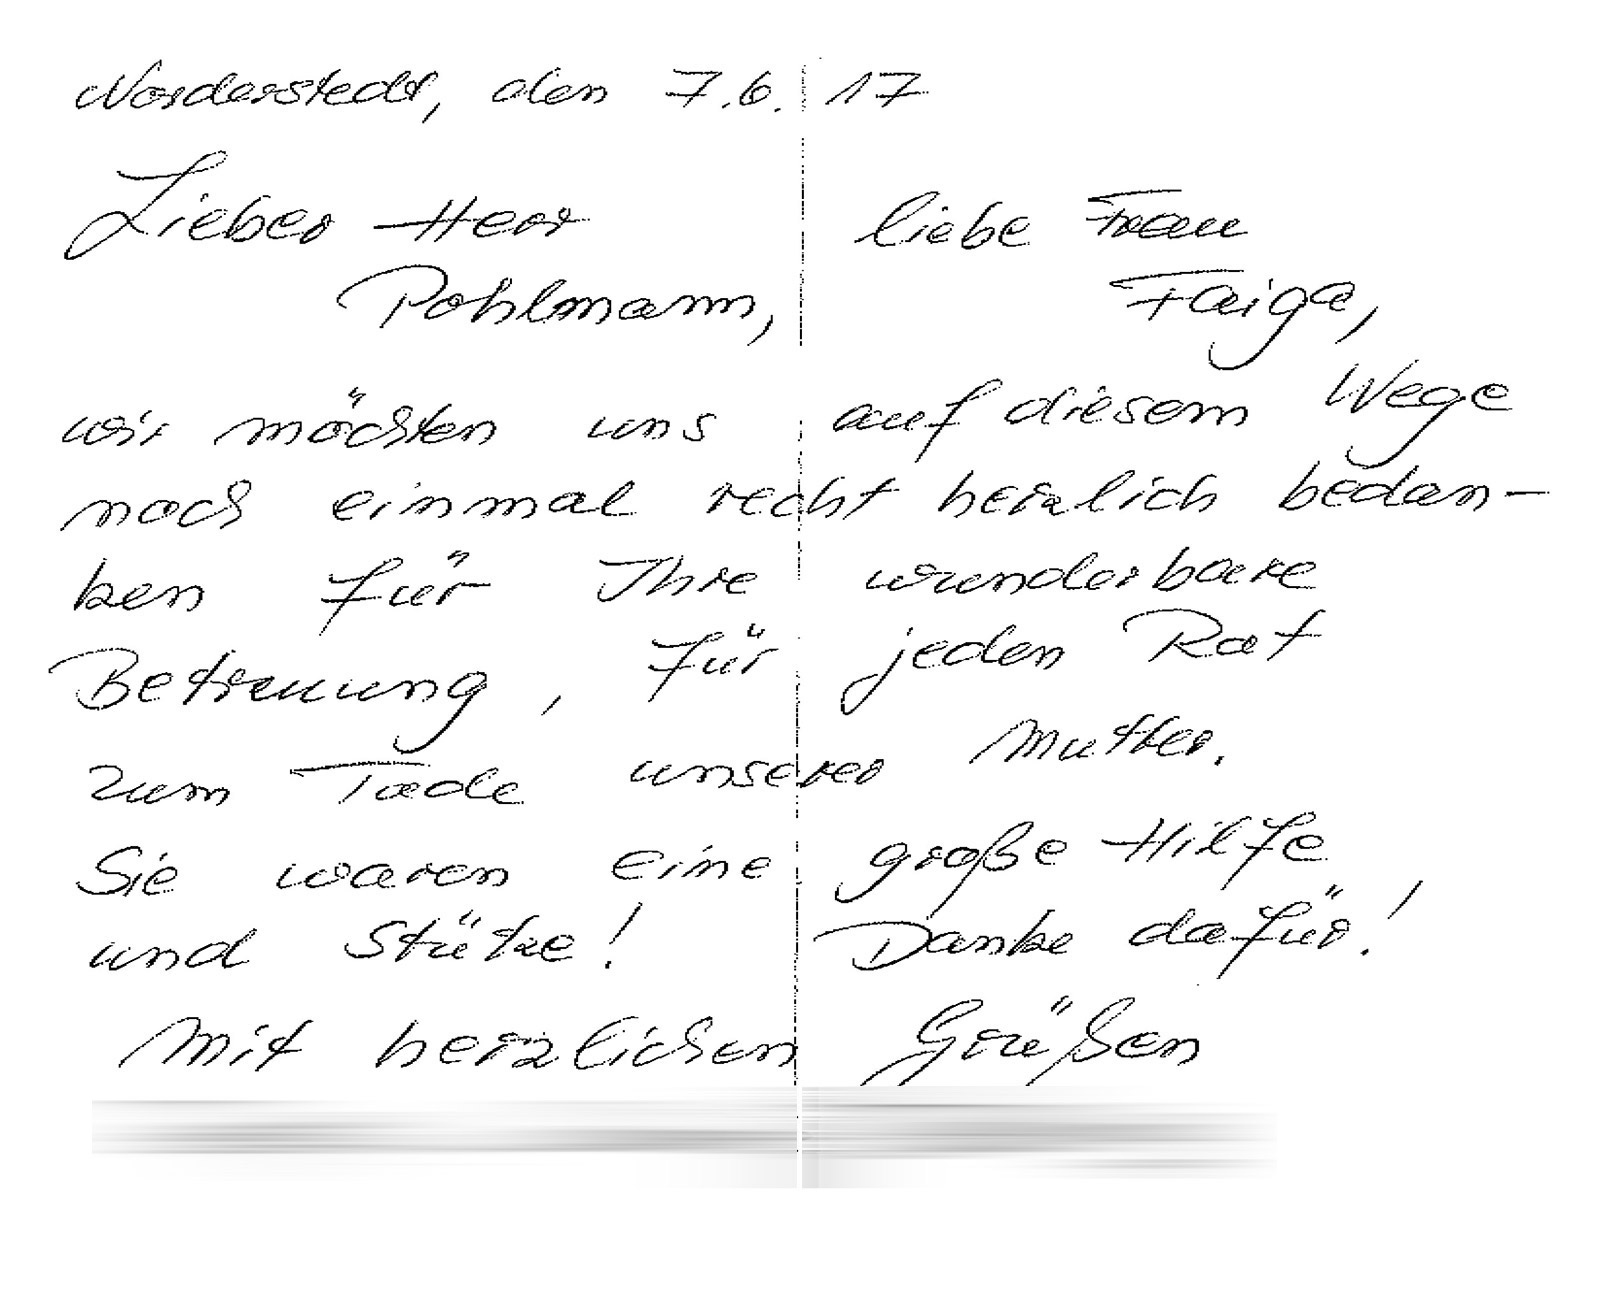 Norderstedt, den 7.6.17
Lieber Herr liebe Frau
Pohlmann, Faiga,
wir möchten uns auf diesem Wege
noch einmal recht herzlich bedan-
ken für Ihre wunderbare
Betreuung, für jeden Rat
zum Tode unserer Mutter.
Sie waren eine große Hilfe
und Stütze! Danke dafür!
Mit herzlichen Grüßen